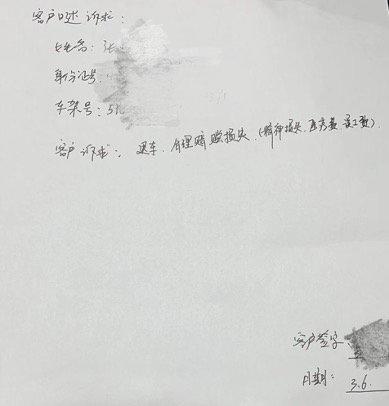 客户口述诉求：
姓名：张
身份证号：
车架号：5
客户诉求：退车、合理赔偿损失（精神损失、医疗费、误工费）
客户签字：
日期：3.6.